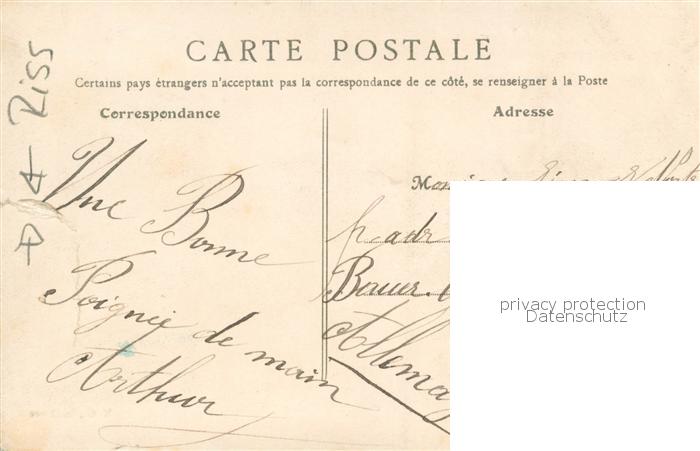 CARTE POSTALE
Certains pays étrangers n'acceptant pas la correspondance de ce côté, se renseigner à la Poste
Correspondance
Adresse
Une Bonne
Poignée de main
Arthur
p. adr
Allema
privacy protection
Datenschutz
Riss